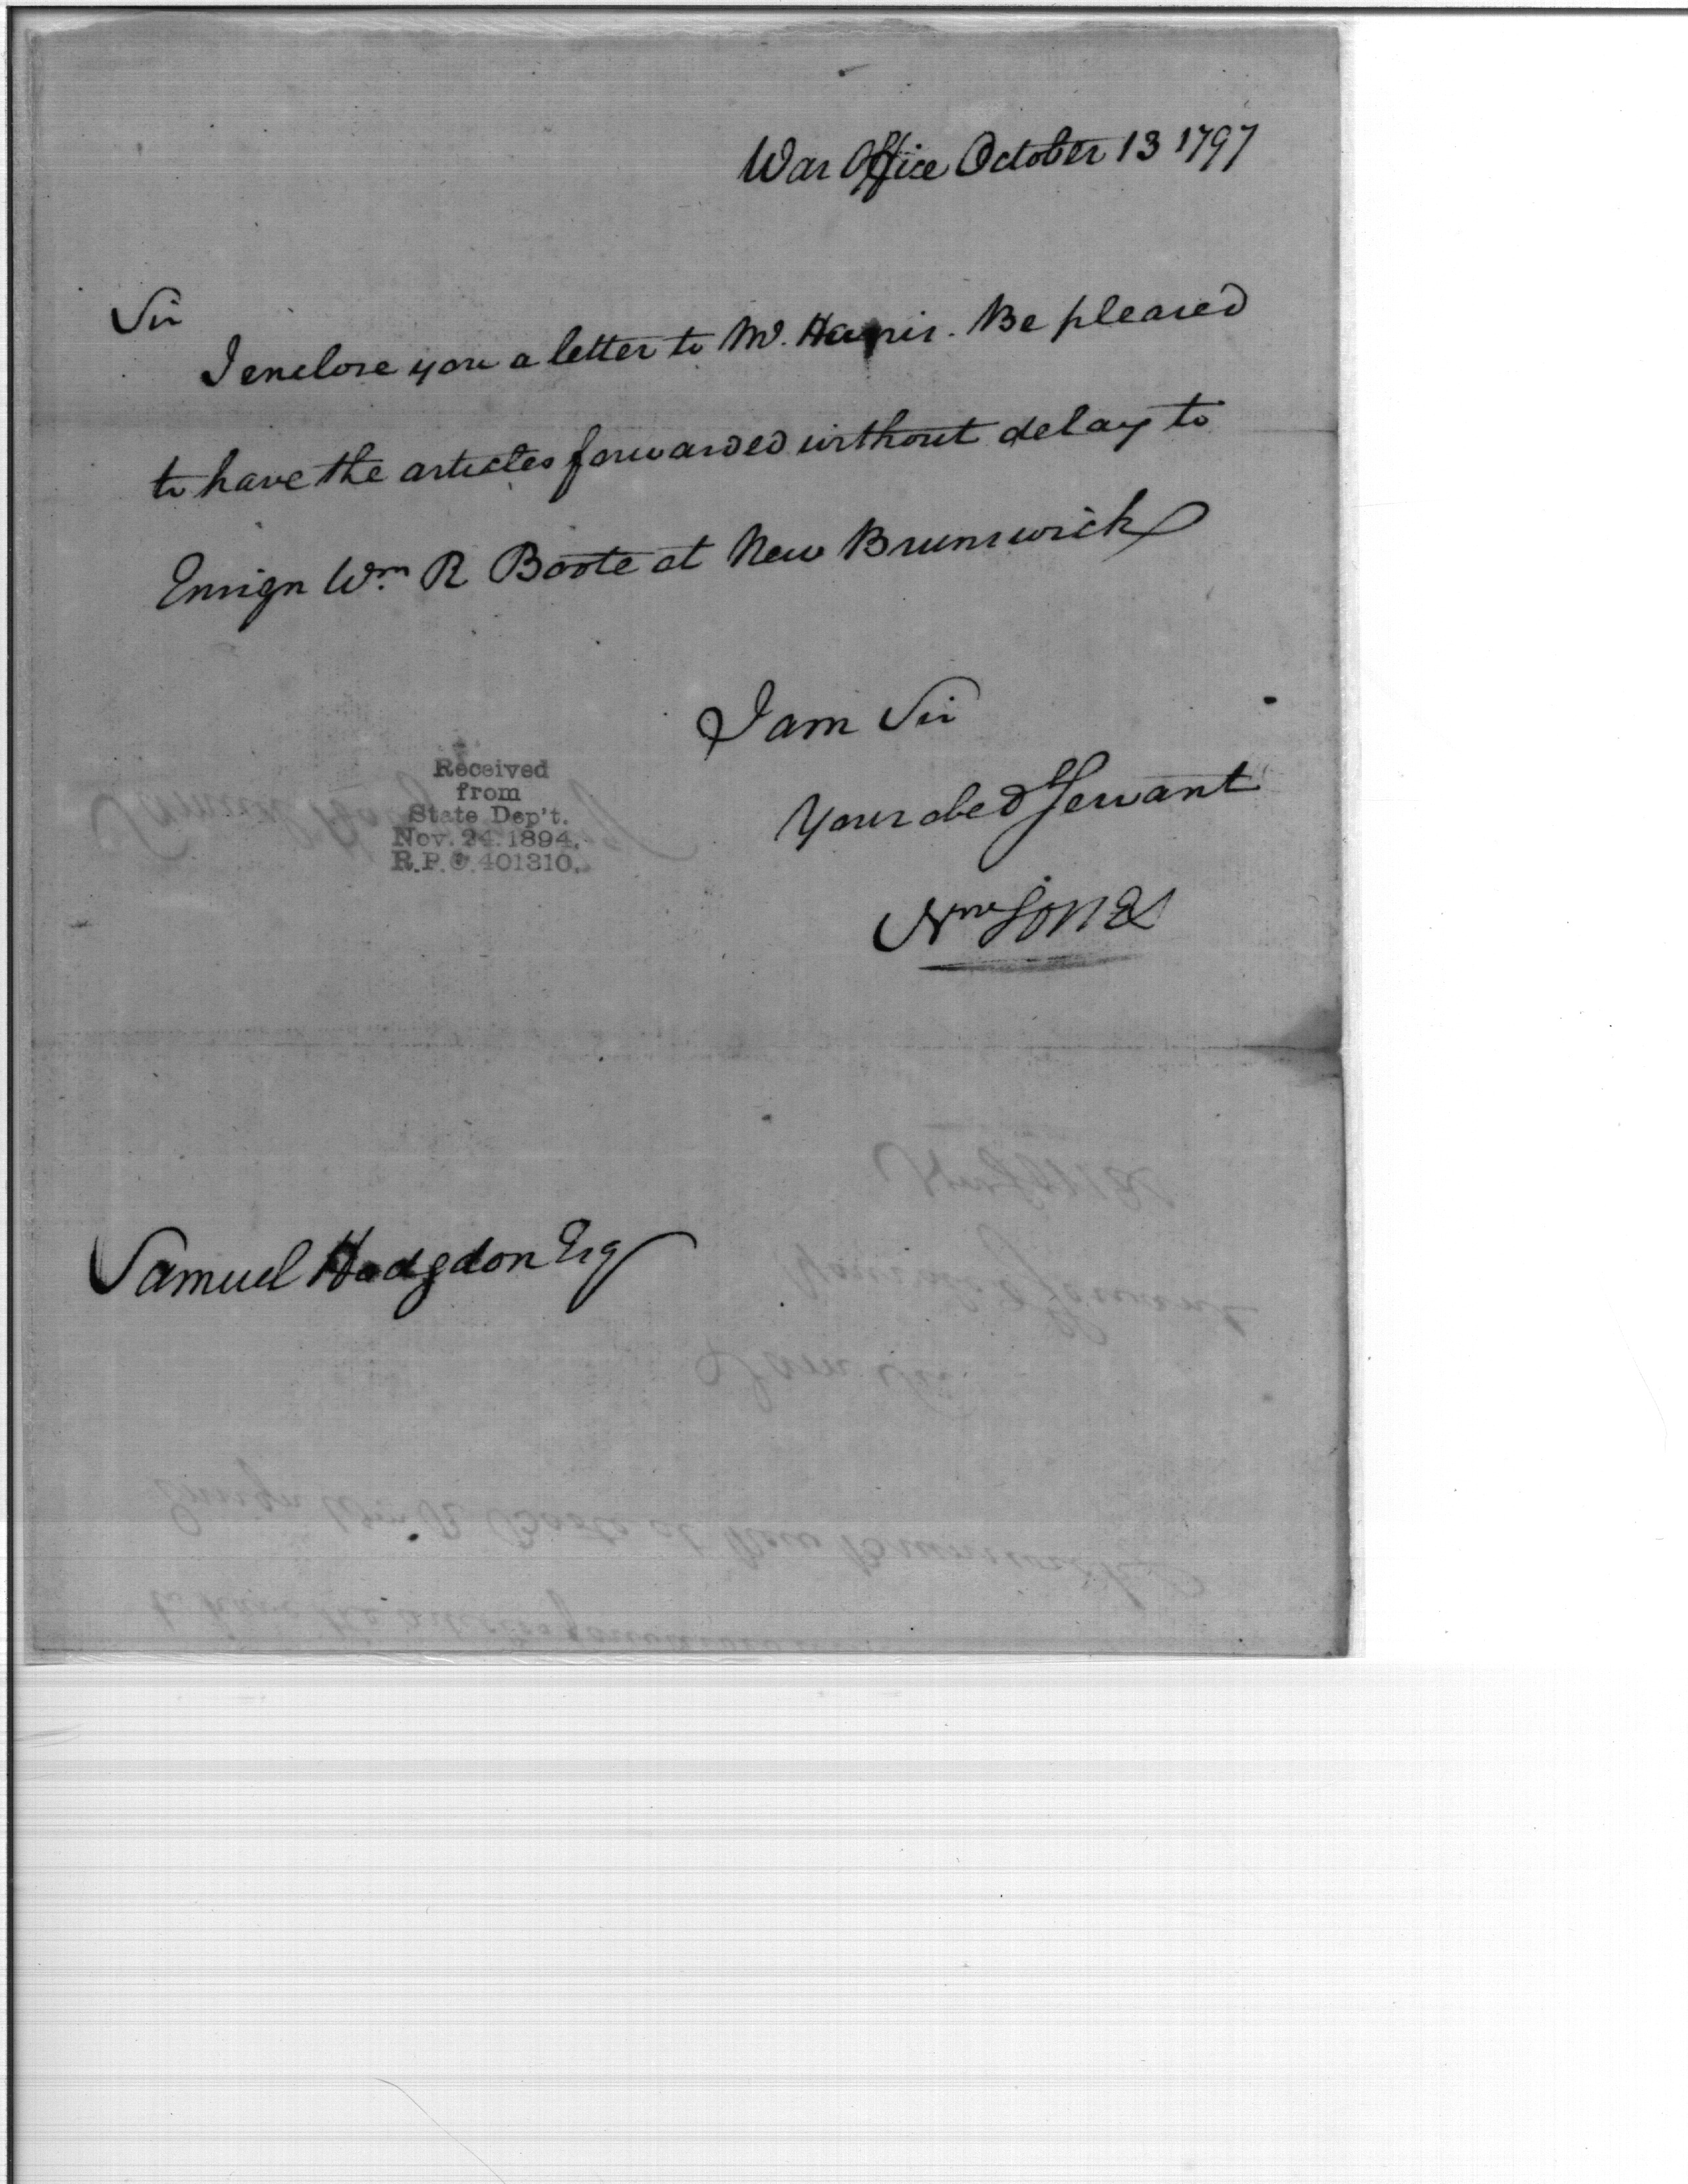 War Office October 13 1797
Sir
I enclose you a letter to Mr. Harris. Be pleased
to have the articles forwarded without delay to
Ensign Wm R Boote at New Brunswick
I am Sir
Your obed Servant
Wm Jones
Received
from
State Dep't.
Nov. 24. 1894.
R.P. 401310.
Samuel Hodgdon Esq